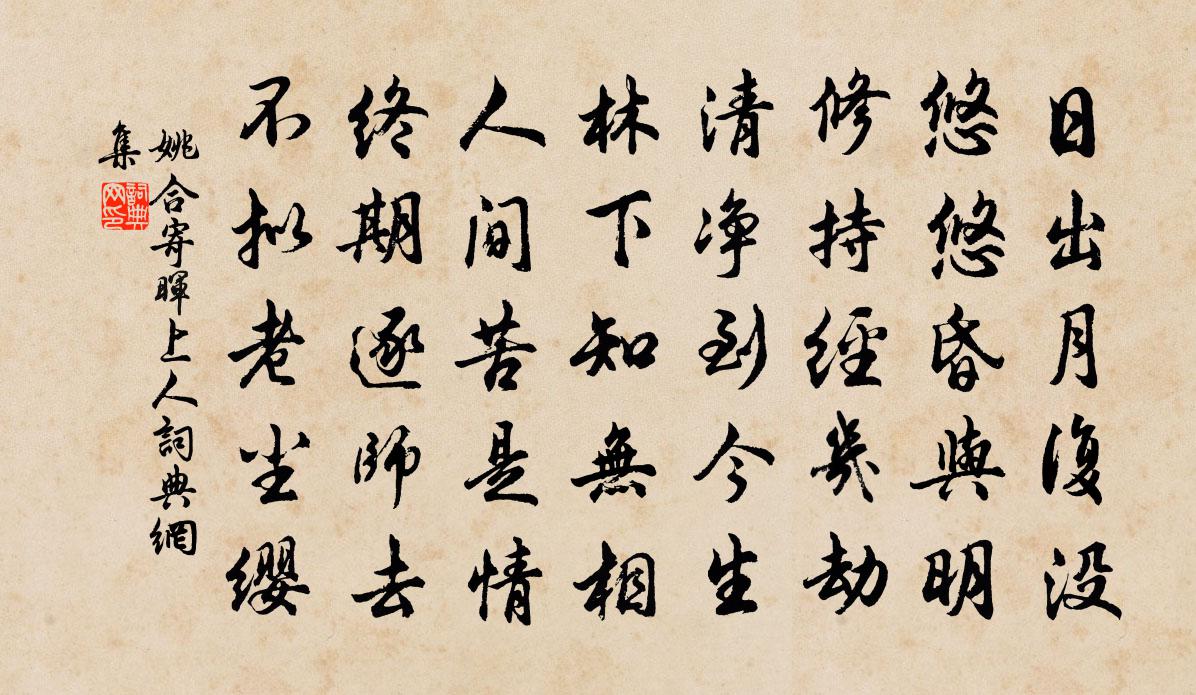 日出月復没
悠悠昏與明
修持經幾劫
清净到今生
林下知無相
人間苦是情
終期逐師去
不拟老尘缨
姚合寄暉上人詞典網
集
詞典网印